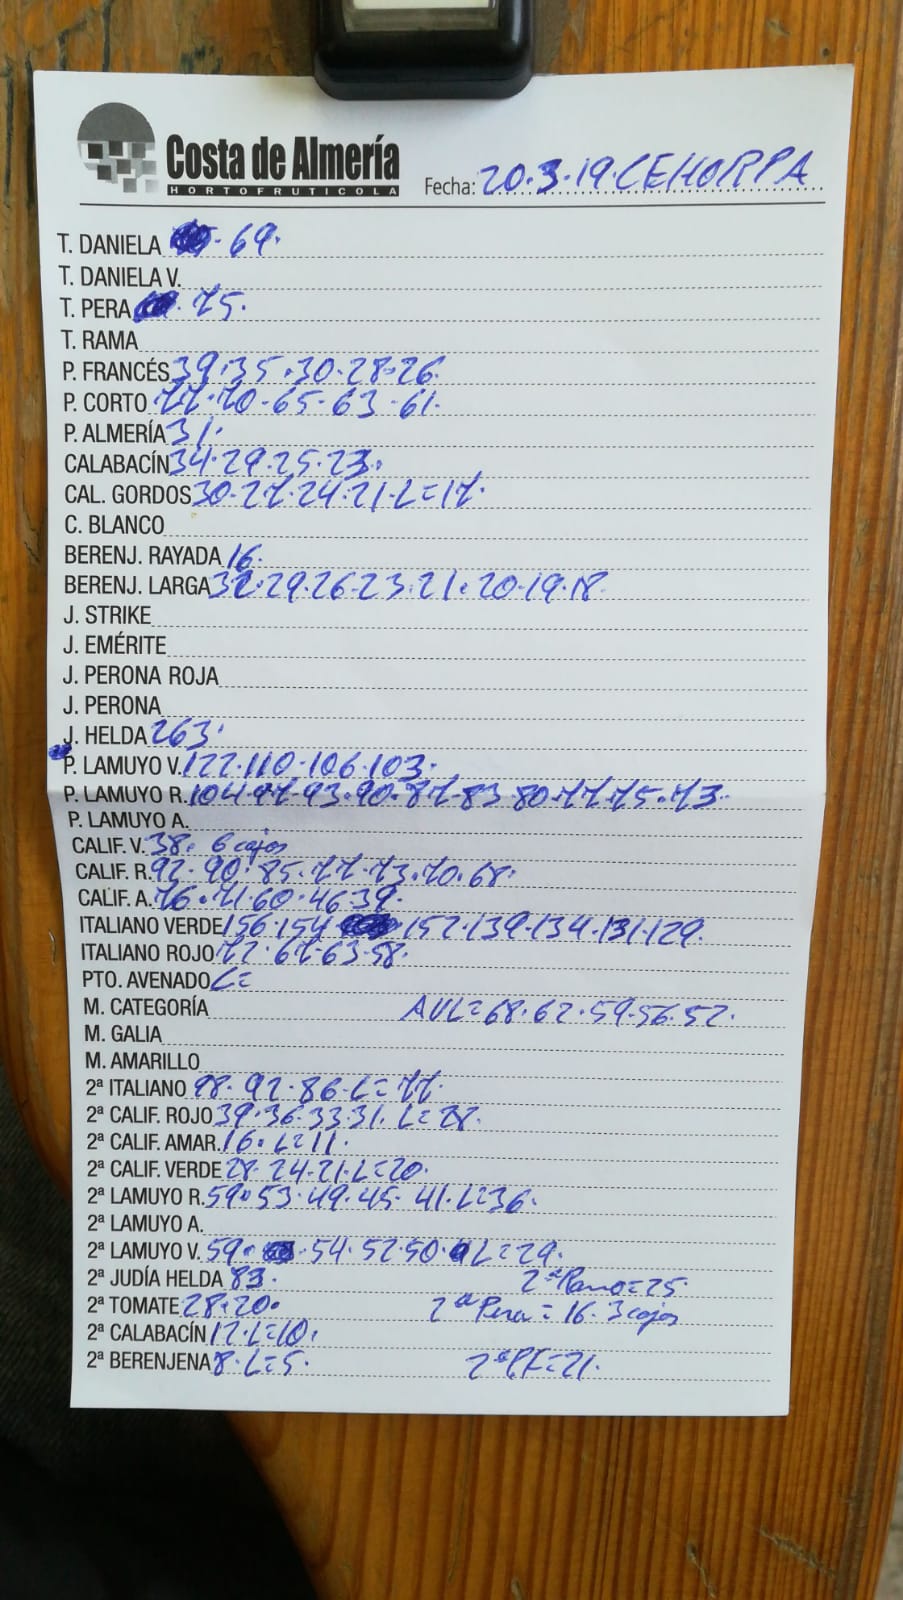 Costa de Almería
HORTOFRUTICOLA
Fecha: 20.3.19.CEHORPA
T. DANIELA 69.
T. DANIELA V.
T. PERA 75.
T. RAMA
P. FRANCÉS 39.35.30.28.26.
P. CORTO 77.70.65.63.61.
P. ALMERÍA 31.
CALABACÍN 34.29.25.23.
CAL. GORDOS 30.27.24.21.L=17.
C. BLANCO
BERENJ. RAYADA 16.
BERENJ. LARGA 32.29.26.23.21.20.19.18.
J. STRIKE
J. EMÉRITE
J. PERONA ROJA
J. PERONA
J. HELDA 263.
P. LAMUYO V. 122.110.106.103.
P. LAMUYO R. 104.97.93.90.87.83.80.77.75.73.
P. LAMUYO A.
CALIF. V. 38. 6 cajas
CALIF. R. 92.90.85.77.73.70.68.
CALIF. A. 76.71.60.46.39.
ITALIANO VERDE 156.154.152.139.134.131.129.
ITALIANO ROJO 72.67.63.58.
PTO. AVENADO L=
M. CATEGORÍA AVL=68.62.59.56.52.
M. GALIA
M. AMARILLO
2ª ITALIANO 98.92.86.L=77.
2ª CALIF. ROJO 39.36.33.31.L=28.
2ª CALIF. AMAR. 16.L=11.
2ª CALIF. VERDE 28.24.21.L=20.
2ª LAMUYO R. 59.53.49.45.41.L=36.
2ª LAMUYO A.
2ª LAMUYO V. 59.54.52.50.L=29.
2ª JUDÍA HELDA 83. 2ªRamo=25.
2ª TOMATE 28.20. 2ªPera=16.3cajas
2ª CALABACÍN 12.L=10.
2ª BERENJENA 8.L=5. 2ªP.F=21.